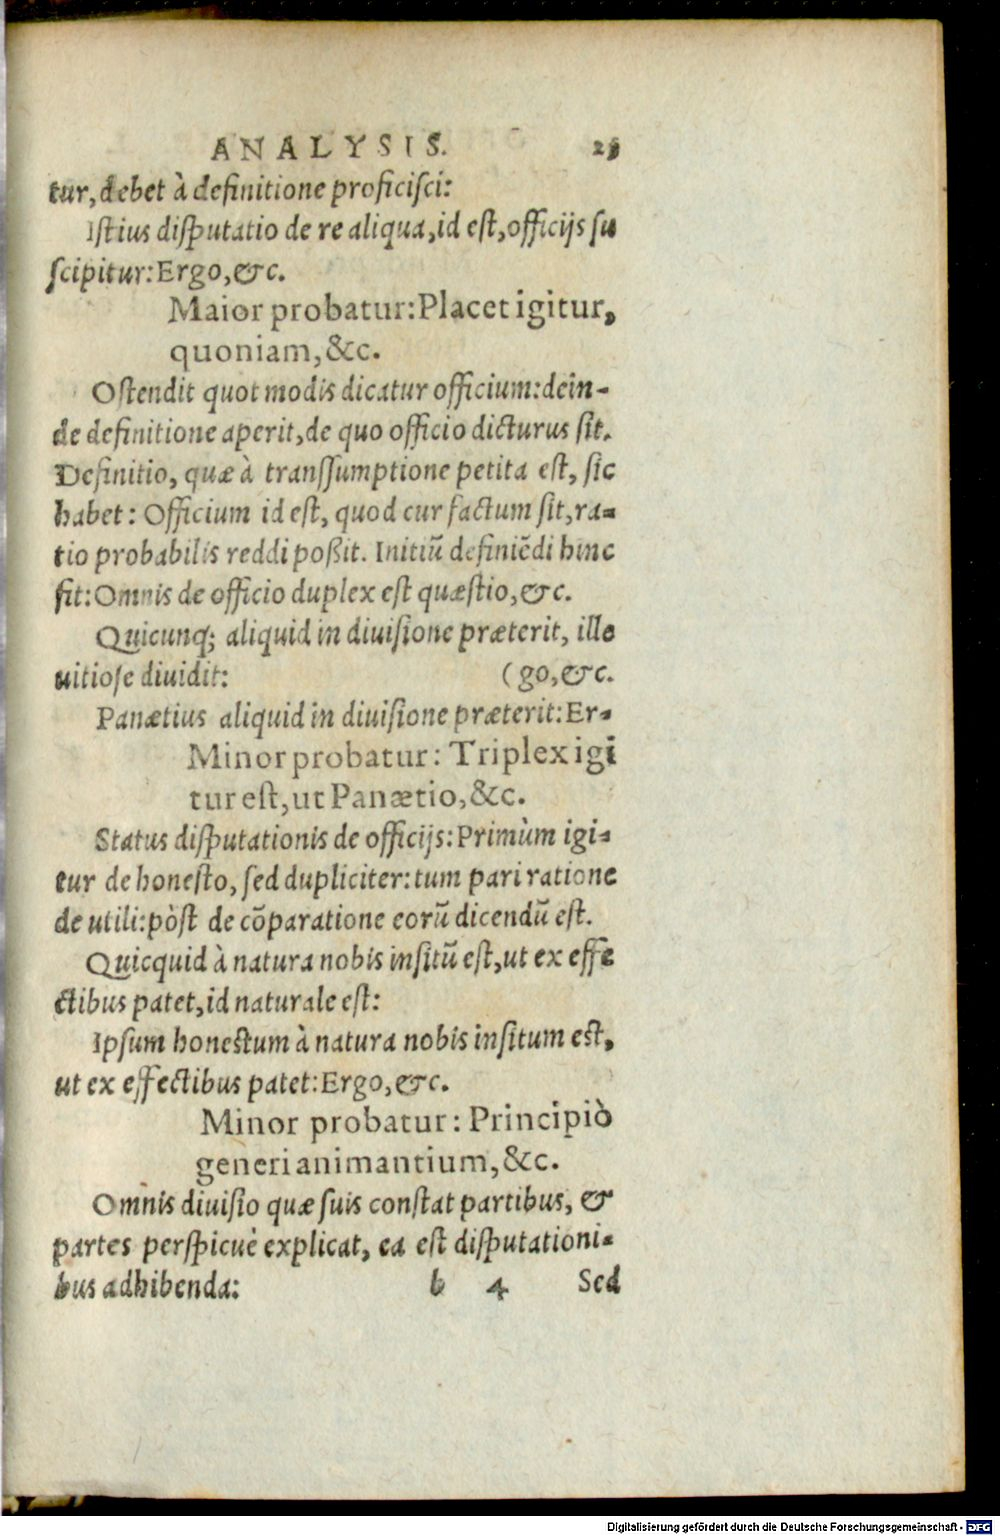 ANALYSIS. 23
tur, debet à definitione proficisci:
Istius disputatio de re aliqua, id est, officijs su
scipitur: Ergo, &c.
Maior probatur: Placet igitur,
quoniam, &c.
Ostendit quot modis dicatur officium: dein-
de definitione aperit, de quo officio dicturus sit.
Definitio, quæ à transsumptione petita est, sic
habet: Officium id est, quod cur factum sit, ra-
tio probabilis reddi poßit. Initiũ definiẽdi hinc
fit: Omnis de officio duplex est quæstio, &c.
Quicunq; aliquid in diuisione præterit, ille
uitiose diuidit: (go, &c.
Panætius aliquid in diuisione præterit: Er-
Minor probatur: Triplex igi
tur est, ut Panætio, &c.
Status disputationis de officijs: Primùm igi-
tur de honesto, sed dupliciter: tum pari ratione
de utili: pòst de cõparatione eorũ dicendũ est.
Quicquid à natura nobis insitũ est, ut ex effe
ctibus patet, id naturale est:
Ipsum honestum à natura nobis insitum est,
ut ex effectibus patet: Ergo, &c.
Minor probatur: Principiò
generi animantium, &c.
Omnis diuisio quæ suis constat partibus, &
partes perspicuè explicat, ea est disputationi-
bus adhibenda: b 4 Sed
Digitalisierung gefördert durch die Deutsche Forschungsgemeinschaft - DFG